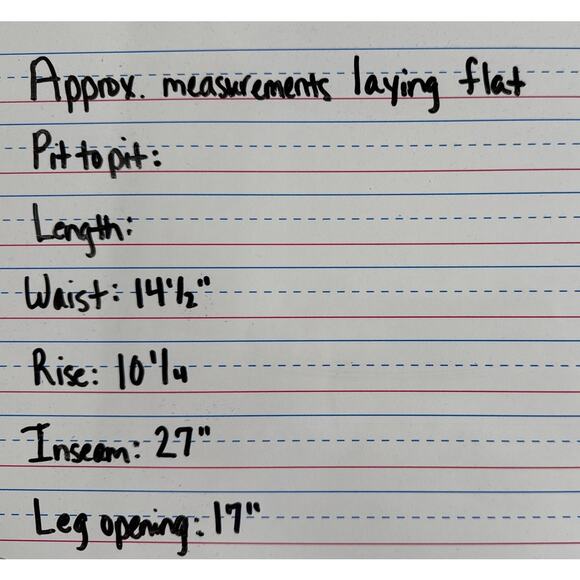 Approx. measurements laying flat
Pit to pit:
Length:
Waist: 14 1/2"
Rise: 10 1/4
Inseam: 27"
Leg opening: 17"